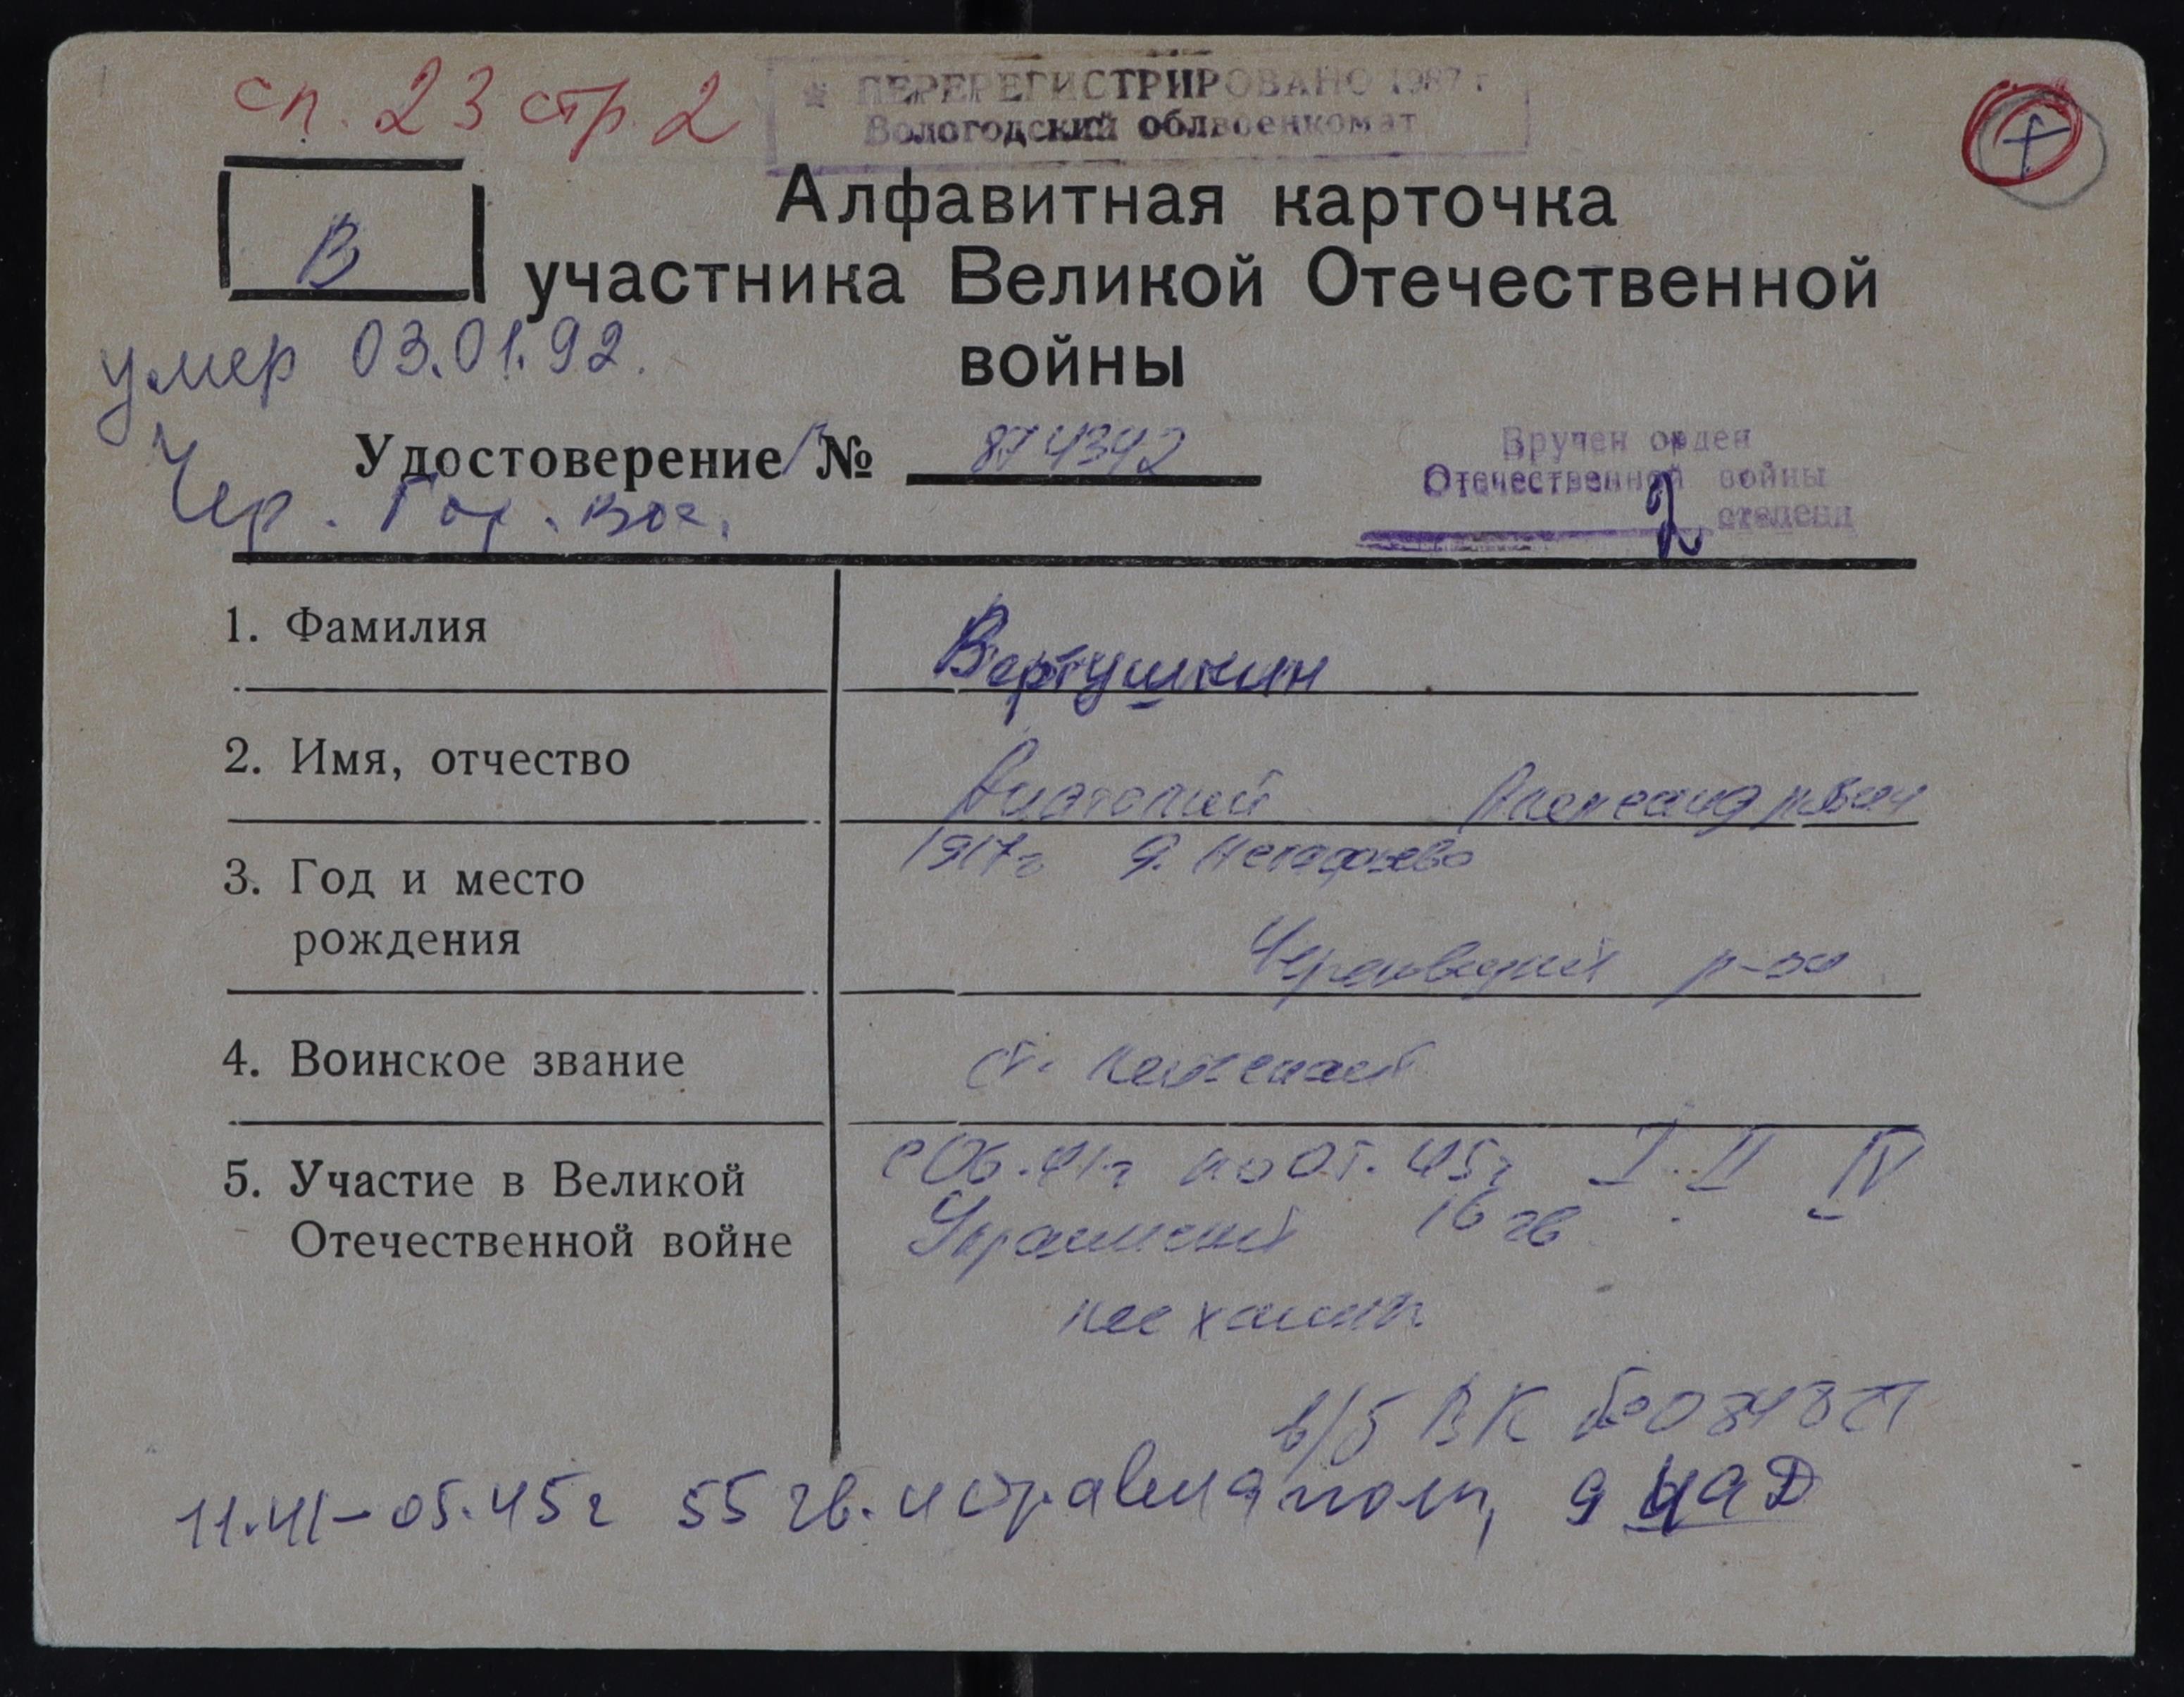 сп. 23 стр. 2
ПЕРЕРЕГИСТРИРОВАНО 1987 г
Вологодский облвоенкомат
В
Алфавитная карточка
участника Великой Отечественной
войны
умер 03.01.92.
Удостоверение № 874342
Чер. Гор. Вос.
Вручен орден
Отечественной войны
2 степени
1. Фамилия
Вертушкин
2. Имя, отчество
Анатолий Александрович
3. Год и место
рождения
1917г д.
Череповецкий р-он
4. Воинское звание
ст. лейтенант
5. Участие в Великой
Отечественной войне
с 06.41г по 05.45г I II IV
Украинский 16 гв.
механик
в/б ВК
11.41-05.45г 55 гв. истр авиаполк, 9 ИАД